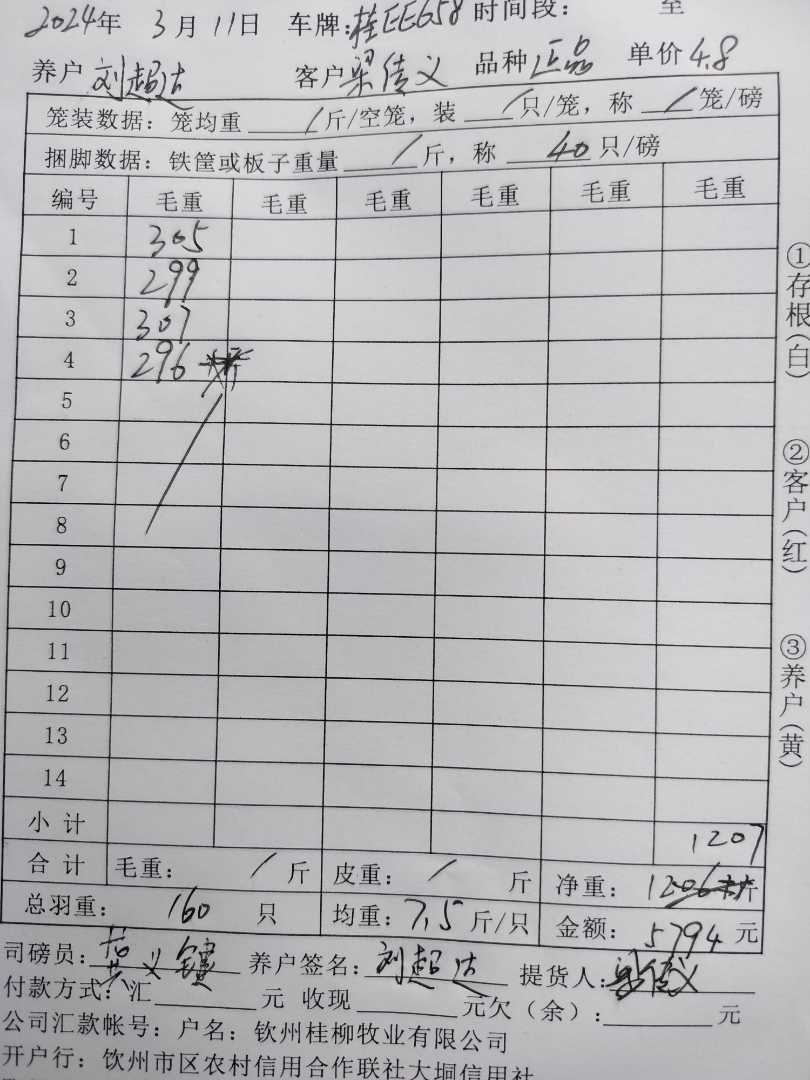 2024年 3月11日 车牌:桂EE658 时间段: 至
养户 刘超达 客户 梁信义 品种 正品 单价 4.8
笼装数据: 笼均重 / 斤/空笼, 装 / 只/笼, 称 / 笼/磅
捆脚数据: 铁筐或板子重量 / 斤, 称 40 只/磅
编号 毛重 毛重 毛重 毛重 毛重 毛重
1 305
2 299
3 307
4 296
5
6
7
8
9
10
11
12
13
14
小计 1207
合计 毛重: / 斤 皮重: / 斤 净重: 1206 斤
总羽重: 160 只 均重: 7.5 斤/只 金额: 5794 元
司磅员: 黄义 养户签名: 刘超达 提货人: 梁信义
付款方式: 汇 元 收现 元欠(余): 元
公司汇款帐号: 户名: 钦州桂柳牧业有限公司
开户行: 钦州市区农村信用合作联社大垌信用社
①存根(白)
②客户(红)
③养户(黄)